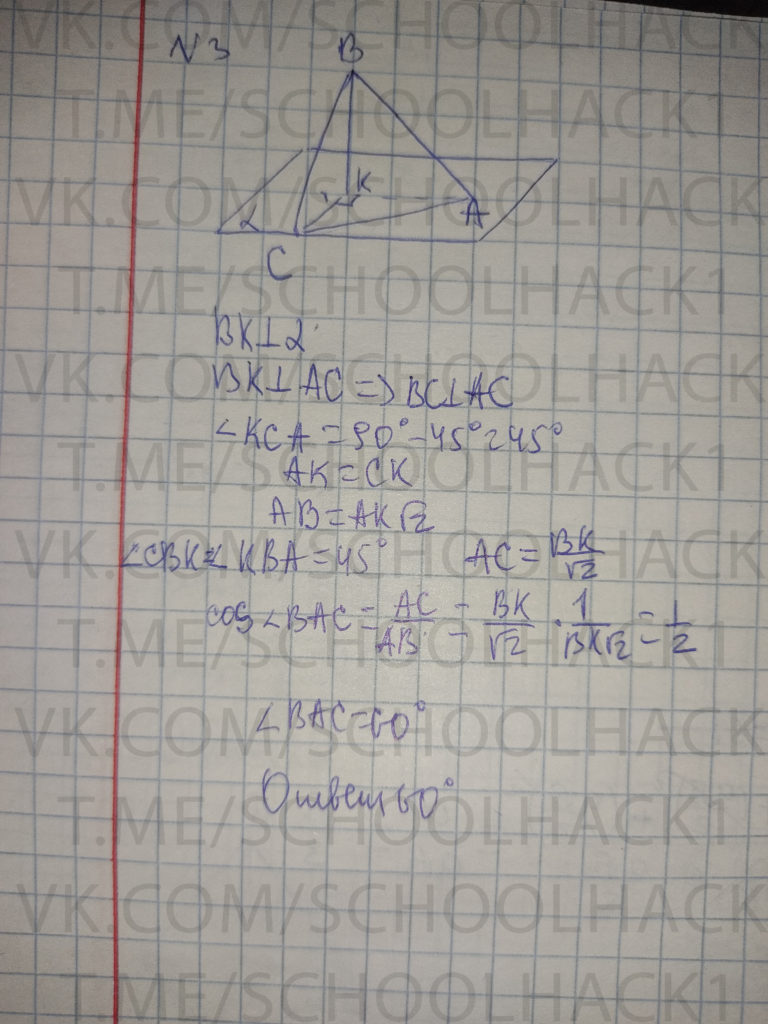 VK.COM/SCHOOLHACK1
N3
B
T.ME/SCHOOLHACK1
K
VK.COM/SCHOOLHACK1
A
α
C
T.ME/SCHOOLHACK1
BK⊥α
VK.COM/SCHOOLHACK1
BK⊥AC=>BC⊥AC
∠KCA=90°-45°=45°
T.ME/SCHOOLHACK1
AK=CK
AB=AK√2
∠CBK=∠KBA=45° AC=BK/√2
VK.COM/SCHOOLHACK1
cos∠BAC=AC/AB=BK/√2·1/BK√2=1/2
T.ME/SCHOOLHACK1
∠BAC=60°
VK.COM/SCHOOLHACK1
Ответ 60°
T.ME/SCHOOLHACK1
VK.COM/SCHOOLHACK1
T.ME/SCHOOLHACK1